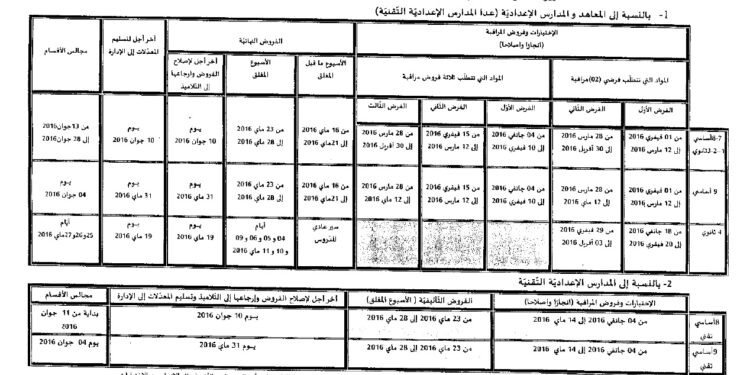 1- بالنسبة إلى المعاهد والمدارس الإعدادية (عدا المدارس الإعدادية التقنية)
الإختبارات وفروض المراقبة
(انجازا واصلاحا)
الفروض النهائية
آخر أجل لتسليم المعدّلات إلى الإدارة
مجالس الأقسام
المواد التي تتطلّب فرضي (02) مراقبة
المواد التي تتطلّب ثلاثة فروض مراقبة
الأسبوع ما قبل المغلق
الأسبوع المغلق
آخر أجل لإصلاح الفروض وإرجاعها إلى التلاميذ
الفرض الأوّل
الفرض الثاني
الفرض الأوّل
الفرض الثاني
الفرض الثالث
من 01 فيفري 2016 إلى 12 مارس 2016
من 28 مارس 2016 إلى 30 أفريل 2016
من 04 جانفي 2016 إلى 10 فيفري 2016
من 15 فيفري 2016 إلى 12 مارس 2016
من 28 مارس 2016 إلى 30 أفريل 2016
من 16 ماي 2016 إلى 21 ماي 2016
من 23 ماي 2016 إلى 28 ماي 2016
يوم 10 جوان 2016
يوم 10 جوان 2016
من 13 جوان 2016 إلى 28 جوان 2016
9 أساسي
من 01 فيفري 2016 إلى 12 مارس 2016
من 28 مارس 2016 إلى 12 ماي 2016
من 04 جانفي 2016 إلى 10 فيفري 2016
من 15 فيفري 2016 إلى 12 مارس 2016
من 28 مارس 2016 إلى 12 ماي 2016
من 16 ماي 2016 إلى 21 ماي 2016
من 23 ماي 2016 إلى 28 ماي 2016
يوم 31 ماي 2016
يوم 31 ماي 2016
يوم 04 جوان 2016
4 ثانوي
من 18 جانفي 2016 إلى 20 فيفري 2016
من 29 فيفري 2016 إلى 03 أفريل 2016
سير عادي للدروس
أيام 04 و 05 و 06 و 09 و 10 و 11 ماي 2016
يوم 19 ماي 2016
يوم 19 ماي 2016
أيام 25و26و27 ماي 2016
2- بالنسبة إلى المدارس الإعدادية التقنية
الإختبارات وفروض المراقبة (انجازا واصلاحا)
الفروض التأليفية (الأسبوع المغلق)
آخر أجل لإصلاح الفروض وإرجاعها إلى التلاميذ وتسليم المعدّلات إلى الإدارة
مجالس الأقسام
8 أساسي تقني
من 04 جانفي 2016 إلى 14 ماي 2016
من 23 ماي 2016 إلى 28 ماي 2016
يوم 10 جوان 2016
بداية من 11 جوان 2016
9 أساسي تقني
من 04 جانفي 2016 إلى 14 ماي 2016
من 23 ماي 2016 إلى 28 ماي 2016
يوم 31 ماي 2016
يوم 04 جوان 2016